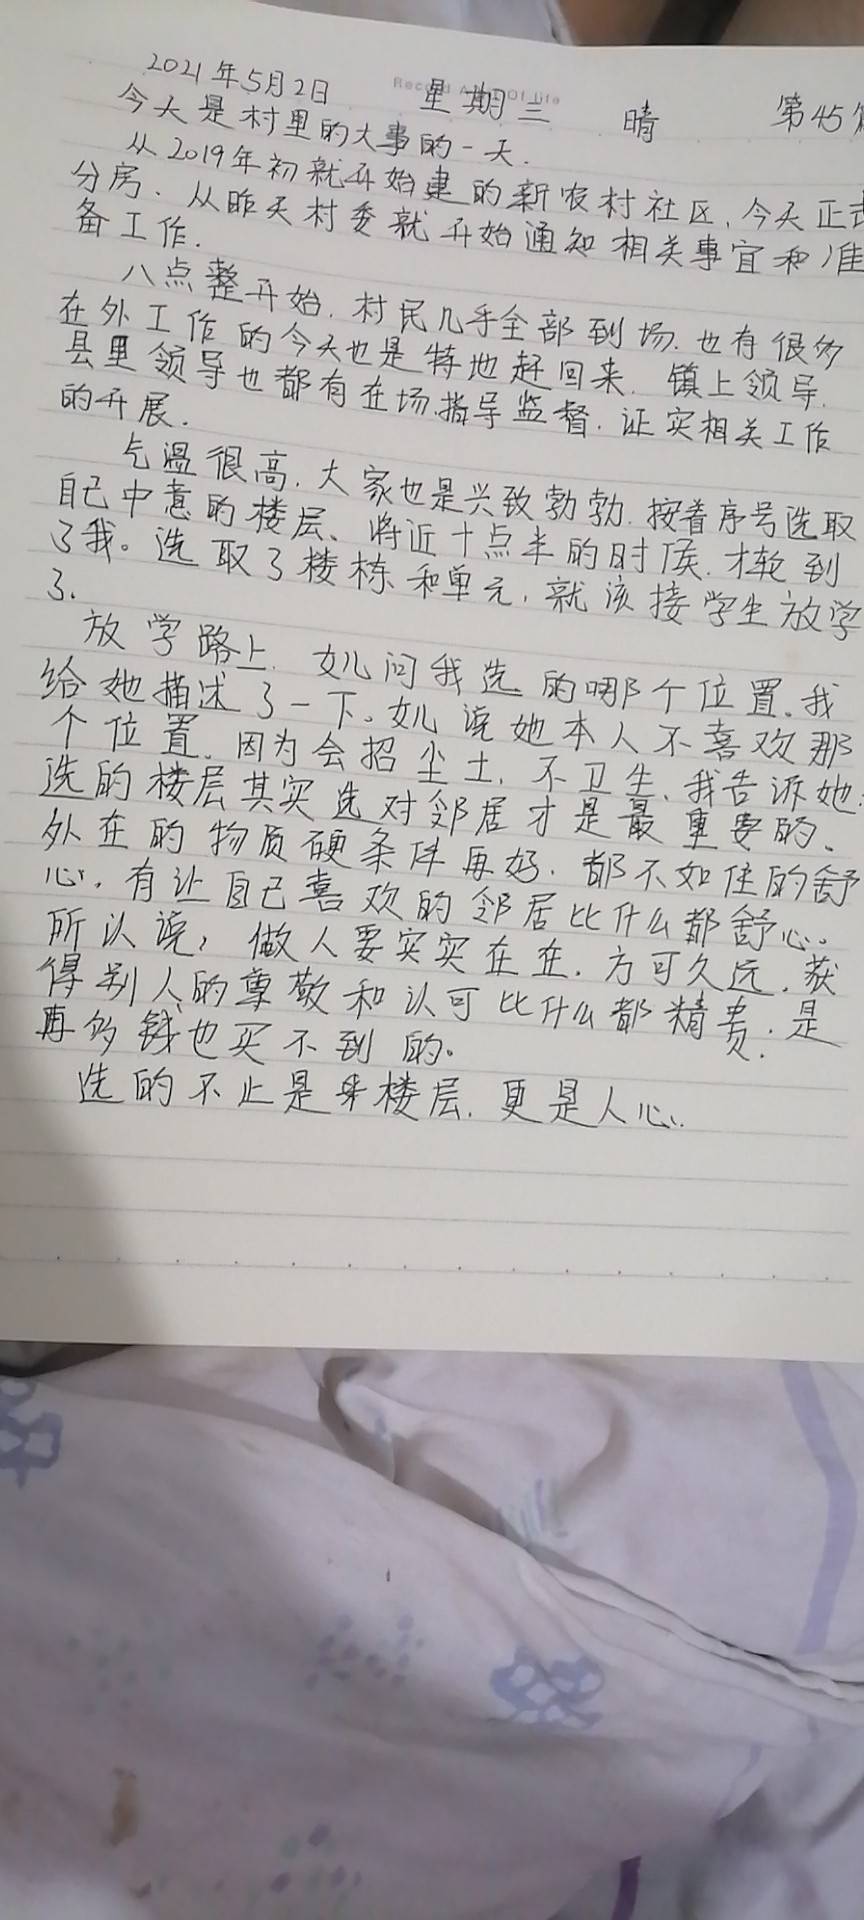 2021年5月2日 星期三 晴 第45
Record A Of life
今天是村里的大事的一天.
从2019年初就开始建的新农村社区,今天正式
分房.从昨天村委就开始通知相关事宜和准
备工作.
八点整开始.村民几乎全部到场.也有很多
在外工作的今天也是特地赶回来.镇上领导.
县里领导也都有在场.指导监督.证实相关工作
的开展.
气温很高.大家也是兴致勃勃.按着序号选取
自己中意的楼层、将近十点半的时候.才轮到
了我。选取了楼栋和单元.就该接学生放学
了.
放学路上.女儿问我选的哪个位置.我
给她描述了一下。女儿说她本人不喜欢那
个位置.因为会招尘土.不卫生.我告诉她:
选的楼层其实选对邻居才是最重要的.
外在的物质硬条件再好.都不如住的舒
心.有让自己喜欢的邻居比什么都舒心。
所以说,做人要实实在在.方可久远.获
得别人的尊敬和认可比什么都精贵.是
再多钱也买不到的。
选的不止是楼层.更是人心.